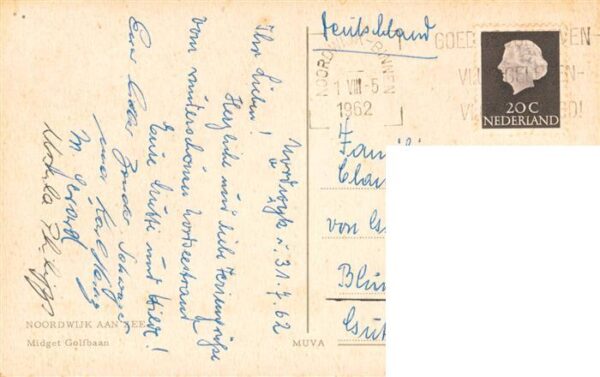 Deutschland
NOORDWIJK-BINNEN
1 VIII -5
1962
GOED
VEN-
VL
EN-
VL
D!
20 C
NEDERLAND
Noordwijk, 31.7.62
Ihr Lieben!
Herzliche und liebe Feriengrüße
vom wunderschönen Nordseestrand
Eure Mutti und
Euer Bruder Schwager
und Karl Heinz
M.
Ursula Philipps
Familie
Clau
von
Blu
Gut
NOORDWIJK AAN ZEE
Midget Golfbaan
MUVA